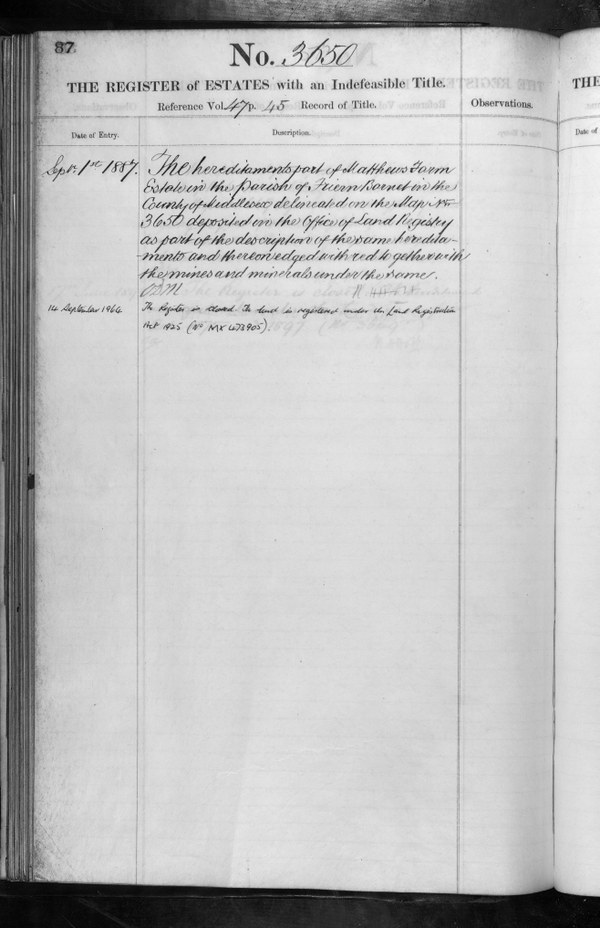 87
No. 3650
THE REGISTER of ESTATES with an Indefeasible Title.
Reference Vol. 47 p. 45 Record of Title.
Observations.
Date of Entry.
Description.
Sept. 1st 1887.
The hereditaments part of Matthews Farm
Estate in the Parish of Friern Barnet in the
County of Middlesex delineated on the Map No.
3650 deposited in the Office of Land Registry
as part of the description of the same heredita-
-ments and thereon edged with red together with
the mines and minerals under the same.
14 September 1966
The Register is closed. The land is registered under the Land Registration
Act 1925 (No MX
THE
Date of